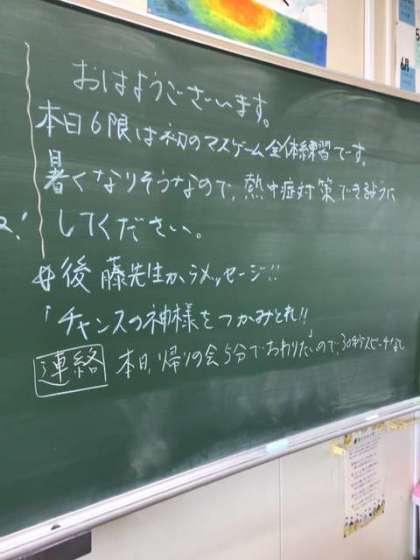 おはようございます。
本日6限は初のマスゲーム全体練習です。
暑くなりそうなので、熱中症対策できるように
してください。
後藤先生からメッセージ!!
「チャンスの神様をつかみとれ!!」
連絡 本日、帰りの会5分でおわりたいので、30秒スピーチなし